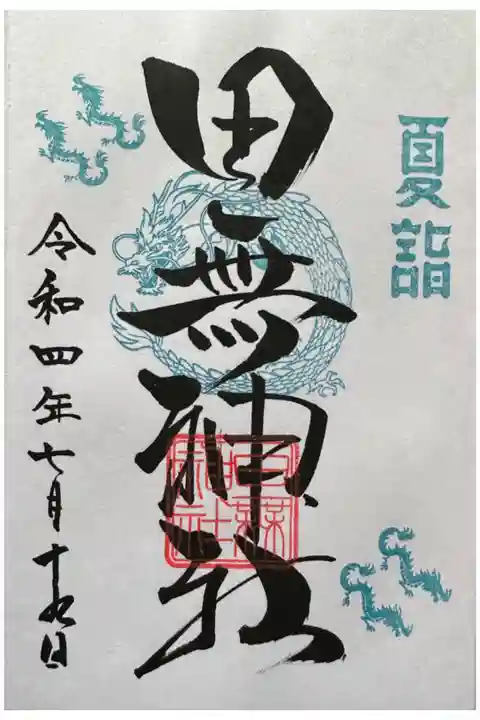 夏詣
田無神社
田無神社
令和四年七月十九日